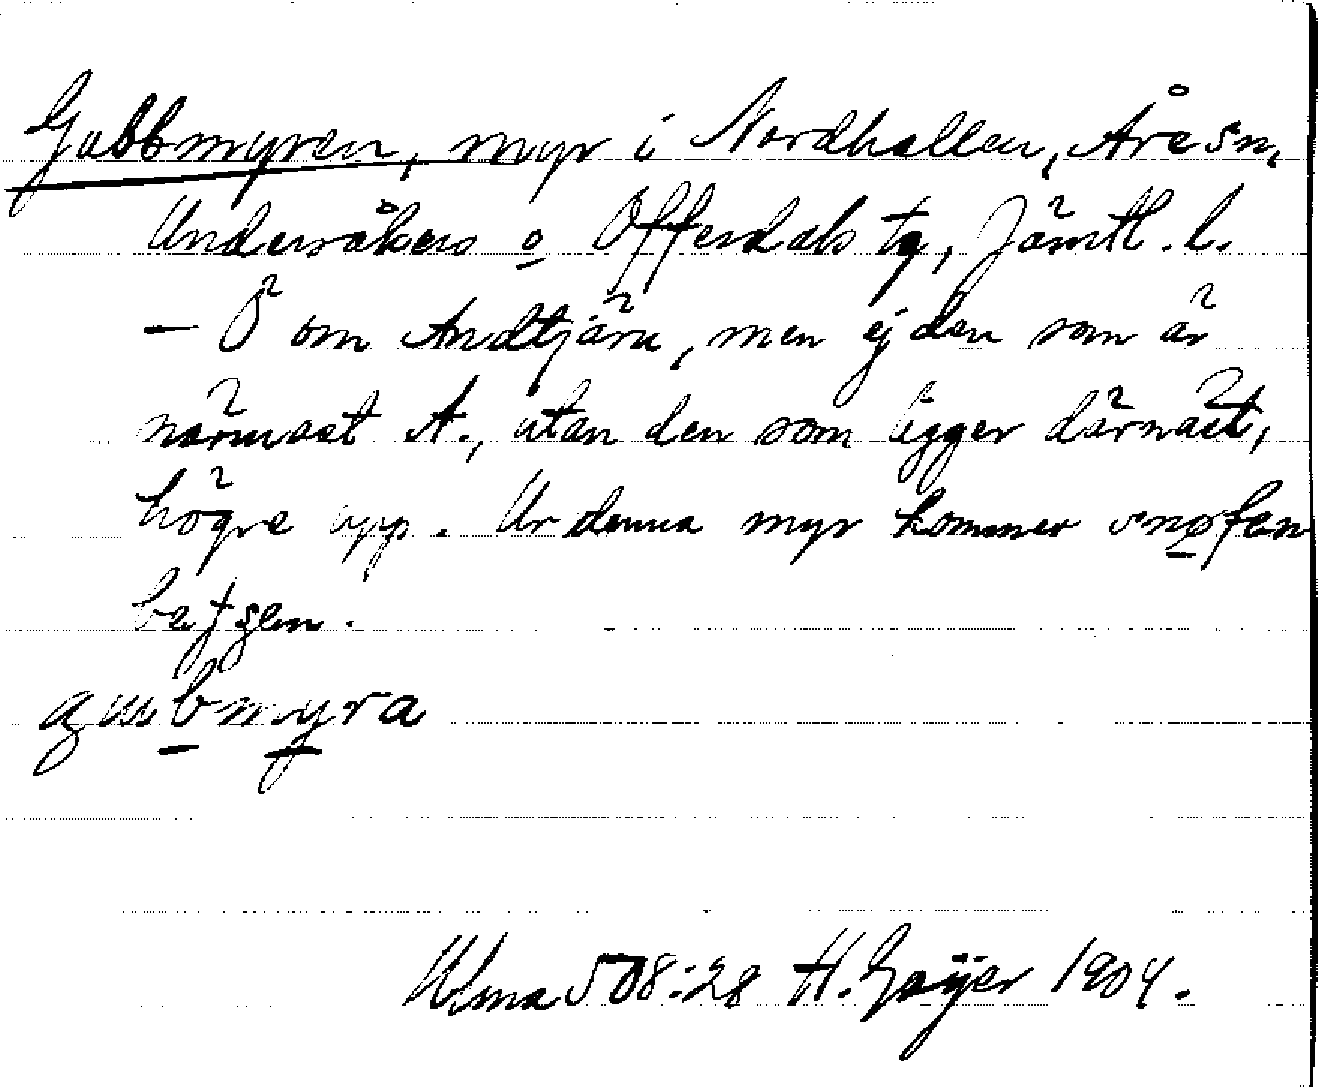 Gubbmyren, myr i Nordhallen, Åre sn,
Undersåkers o Offerdals tg, Jämtl. l.
– Ö om Andtjärn, men ej den som är
närmast A., utan den som ligger därnäst,
högre upp. Ur denna myr kommer
gubmyra
Ulma 508:28 H. Geijer 1904.